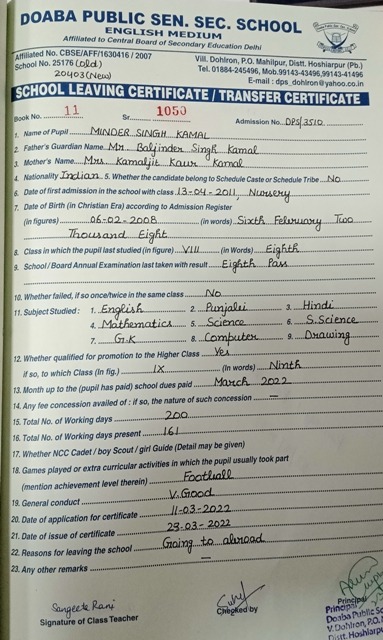 DOABA PUBLIC SEN. SEC. SCHOOL
ENGLISH MEDIUM
Affiliated to Central Board of Secondary Education Delhi
Affiliated No. CBSE/AFF/1630416 / 2007
School No. 25176 (old)
20403 (New)
Vill. Dohlron, P.O. Mahilpur, Distt. Hoshiarpur (Pb.)
Tel. 01884-245496, Mob.99143-43496,99143-41496
E-mail : dps_dohlron@yahoo.co.in
SCHOOL LEAVING CERTIFICATE / TRANSFER CERTIFICATE
Book No. 11 Sr. 1050 Admission No. DPS/3510
1. Name of Pupil MINDER SINGH KAMAL
2. Father's Guardian Name Mr. Baljinder Singh Kamal
3. Mother's Name Mrs. Kamaljit Kaur Kamal
4. Nationality Indian 5. Whether the candidate belong to Schedule Caste or Schedule Tribe No
6. Date of first admission in the school with class 13-04-2011, Nursery
7. Date of Birth (in Christian Era) according to Admission Register
(in figures) 06-02-2008 (in words) Sixth February Two
Thousand Eight
8. Class in which the pupil last studied (in figure) VIII (in Words) Eighth
9. School / Board Annual Examination last taken with result Eighth Pass
10. Whether failed, if so once/twice in the same class No
11. Subject Studied : 1. English 2. Punjabi 3. Hindi
4. Mathematics 5. Science 6. S.Science
7. G.K 8. Computer 9. Drawing
12. Whether qualified for promotion to the Higher Class Yes
if so, to which Class (In fig.) IX (In words) Ninth
13. Month up to the (pupil has paid) school dues paid March 2022
14. Any fee concession availed of : if so, the nature of such concession —
15. Total No. of Working days 200
16. Total No. of Working days present 161
17. Whether NCC Cadet / boy Scout / girl Guide (Detail may be given)
18. Games played or extra curricular activities in which the pupil usually took part
(mention achievement level therein) Football
19. General conduct V.Good
20. Date of application for certificate 11-03-2022
21. Date of issue of certificate 23-03-2022
22. Reasons for leaving the school Going to abroad
23. Any other remarks —
Sangeeta Rani
Signature of Class Teacher
Checked by
Principal
Principal
Doaba Public Sc
V. Dohlron, P.O.
Distt. Hoshiarpu